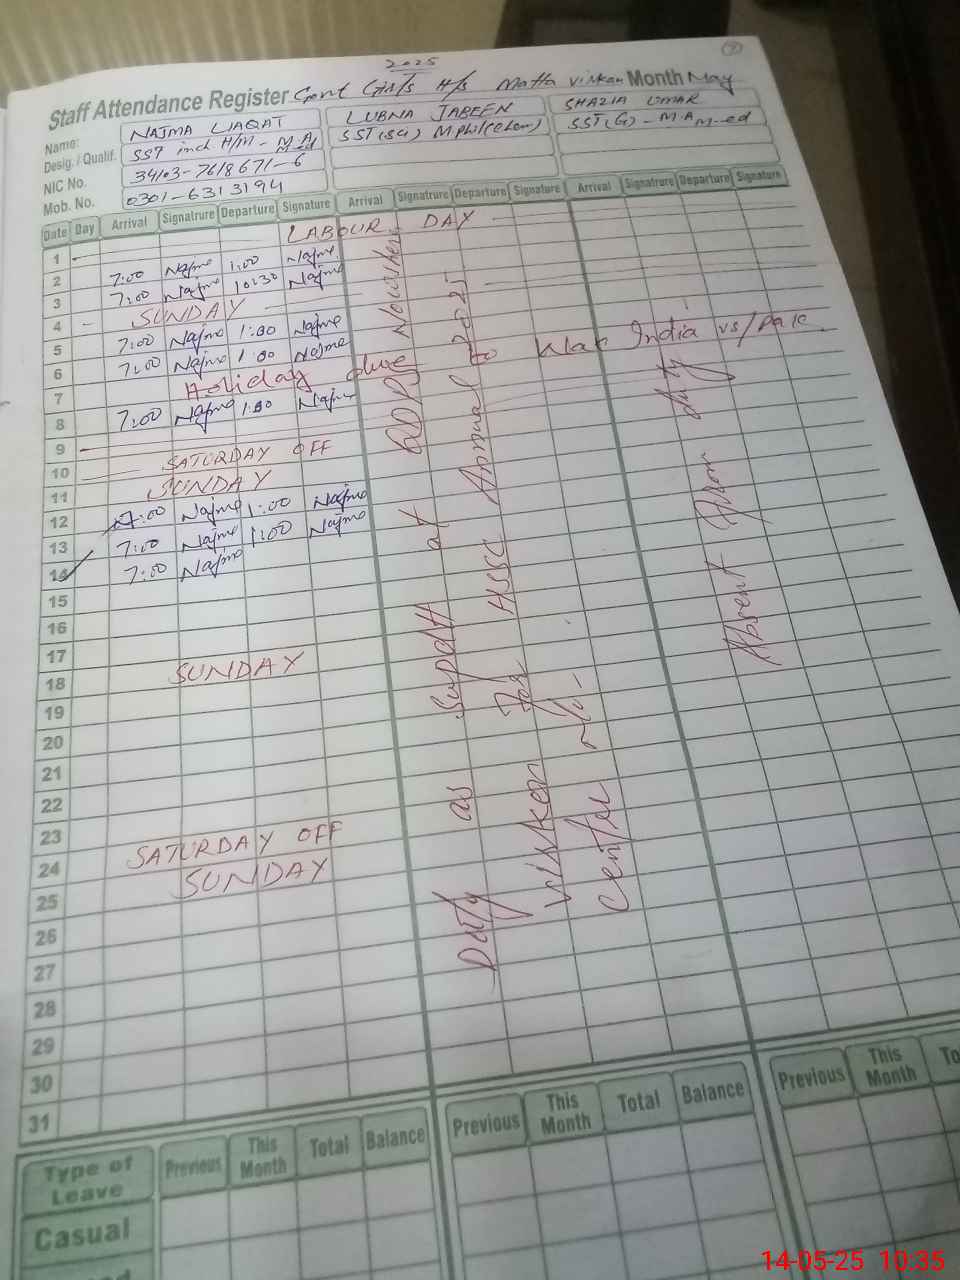 2025
Staff Attendance Register Govt Girls H/s Matta Virkan Month May
Name: NAJMA LIAQAT LUBNA JABEEN SHAZIA UMAR
Desig. / Qualif. SST inch H/M - M.A SST(Sci) M Phil(Chem) SST(G) - M.A M-ed
NIC No. 34103-7618671-6
Mob. No. 0301-6313194
Date Day Arrival Signatrure Departure Signature Arrival Signatrure Departure Signature Arrival Signatrure Departure Signature
1 LABOUR DAY
2 7:00 Najma 1:00 Najma
3 7:00 Najma 10:30 Najma
4 SUNDAY
5 7:00 Najma 1:00 Najma
6 7:00 Najma 1:00 Najma
7 Holiday due to War India vs/Pak.
8 7:00 Najma 1:00 Najma
9
10 SATURDAY OFF
11 SUNDAY
12 7:00 Najma 1:00 Najma
13 7:00 Najma 1:00 Najma
14 7:00 Najma
15
16
17
18 SUNDAY
19
20
21
22
23
24 SATURDAY OFF
25 SUNDAY
26
27
28
29
30
31
Duty as Supdtt at
Virkan for HSSC Annual 2025
Center No-
Absent from duty
Previous This Month Total Balance Previous This Month Total Balance Previous This Month To
Type of Leave
Casual
14-05-25 10:35